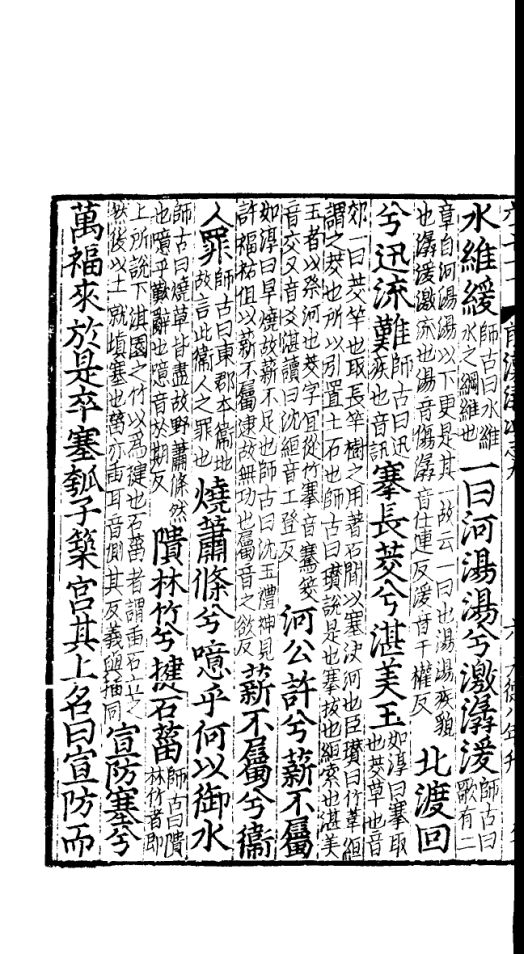 水維緩師古曰水維
水之綱維也
一曰河湯湯兮激潺湲師古曰
歌有二
章自河湯湯以下更是其一故云一曰也湯湯疾貌
也潺湲激流也湯音傷潺音仕連反湲音于權反
北渡回
兮迅流難師古曰迅
疾也音訊
搴長茭兮湛美玉如淳曰搴取
也茭草也音
郊一曰茭竿也取長竿樹之用著石間以塞決河也臣瓚曰竹葦絙
謂之茭也所以引置土石也師古曰瓚說是也搴拔也絙索也湛美
玉者以祭河也茭字宜從竹搴音騫茭
音交又音爻湛讀曰沈絙音工登反
河公許兮薪不屬
如淳曰旱燒故薪不足也師古曰沈玉禮神見
許福祐但以薪不屬逮故無功也屬音之欲反
薪不屬兮衞
人罪師古曰東郡本衞地
故言此衞人之罪也
燒蕭條兮噫乎何以御水
師古曰燒草皆盡故野蕭條然
也噫乎歎辭也噫音於期反
隤林竹兮揵石菑師古曰隤
林竹者即
上所說下淇園之竹以為揵也石菑者謂臿石立之
然後以土就填塞也菑亦臿耳音側其反義與插同
宣防塞兮
萬福來於是卒塞瓠子築宮其上名曰宣防而